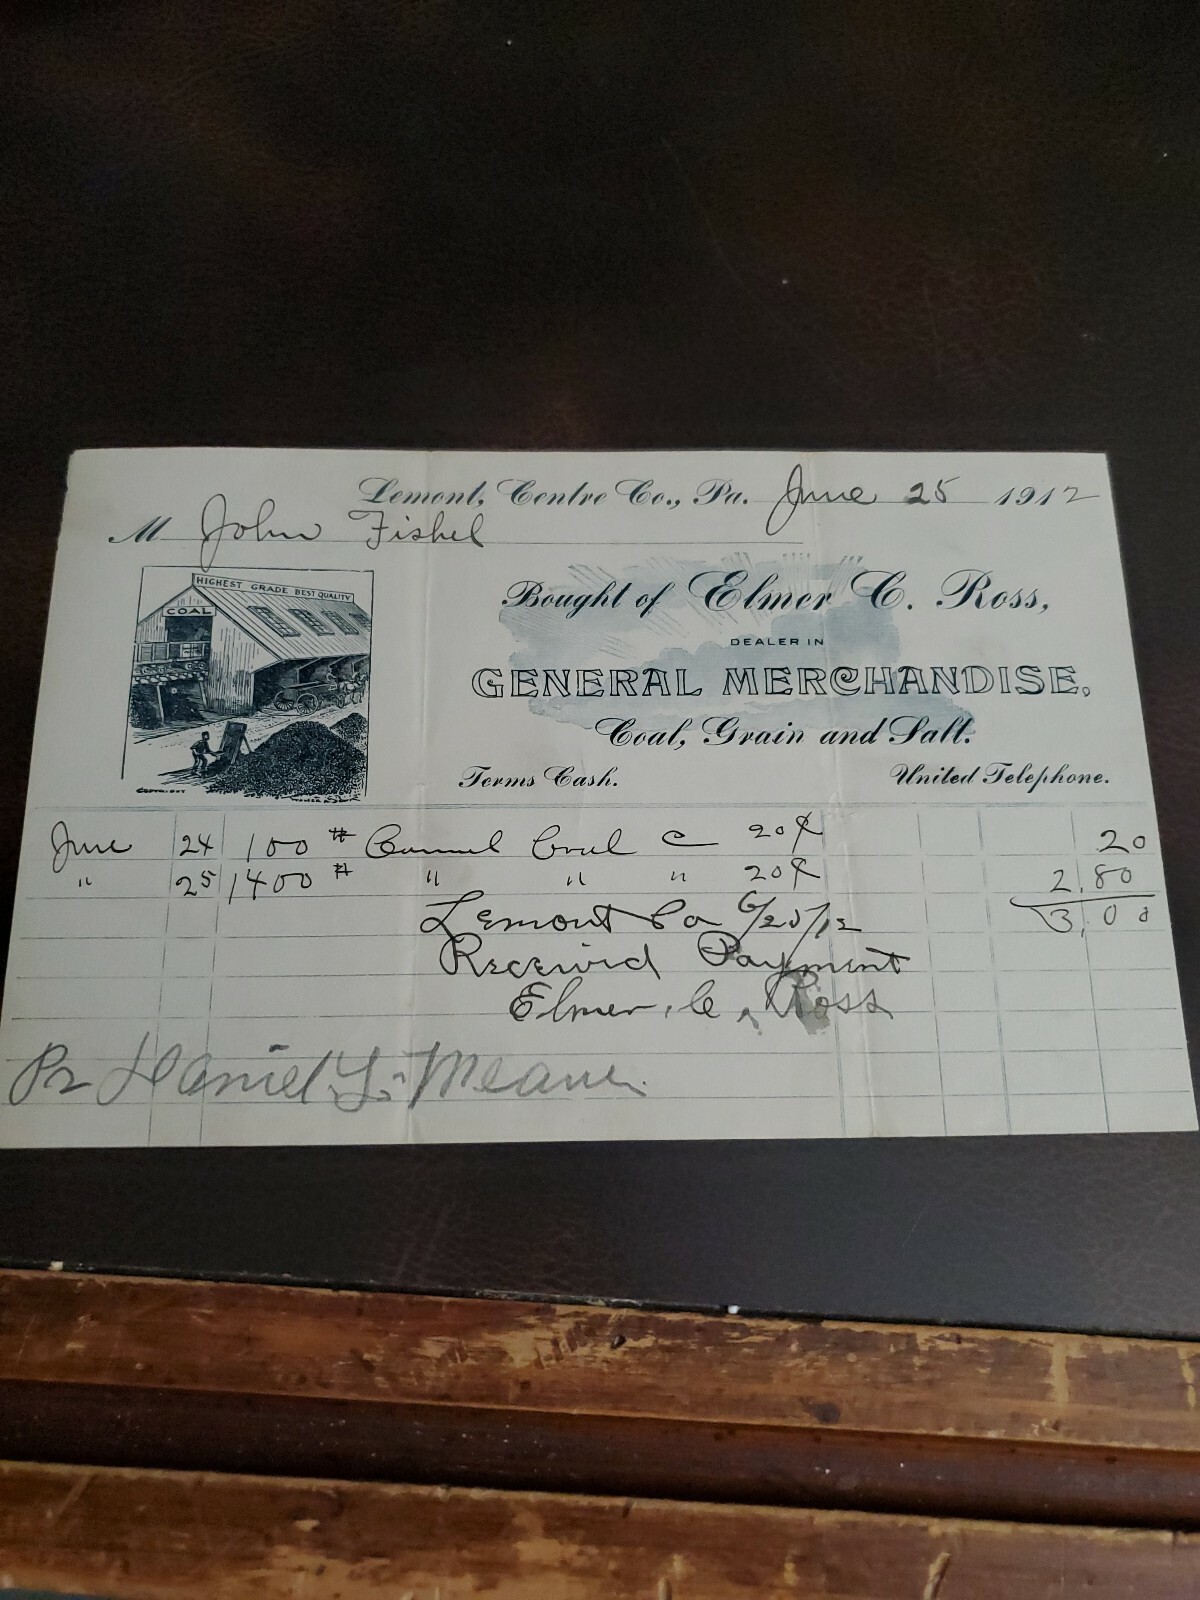 Lemont, Centre Co., Pa. June 25 1912
M John Fishel
HIGHEST GRADE BEST QUALITY
COAL
COPYRIGHT
Bought of Elmer C. Ross,
DEALER IN
GENERAL MERCHANDISE.
Coal, Grain and Salt.
Terms Cash.
United Telephone.
June 24 100 # Cannel Coal @ 20¢ 20
" 25 1400 # " " " 20¢ 2.80
3.00
Lemont Pa 6/25/12
Received Payment
Elmer. C. Ross
Pr Daniel Y.